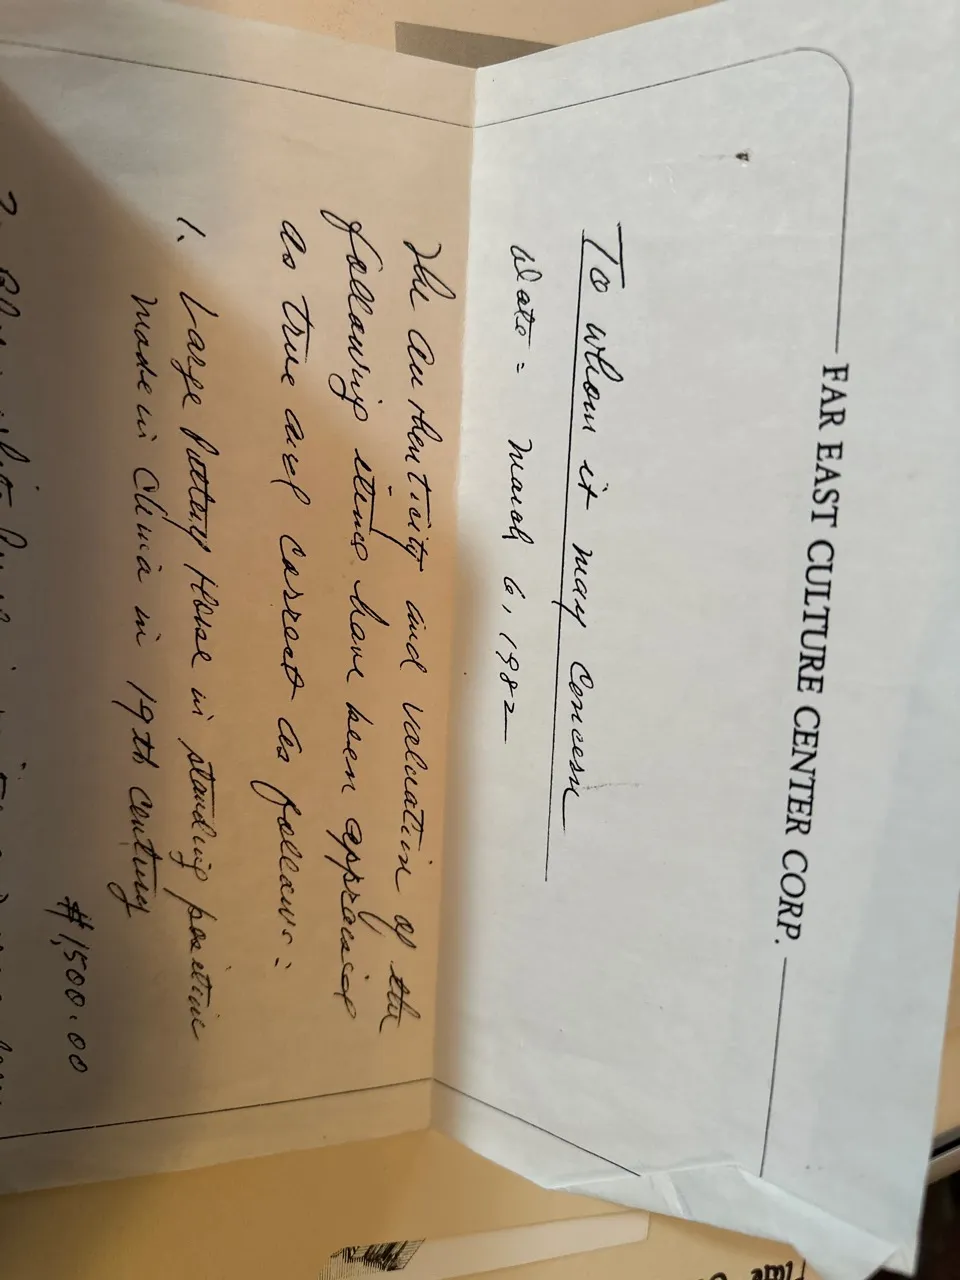 FAR EAST CULTURE CENTER CORP.
To whom it may concern
Date: March 6, 1982
The authenticity and valuation of the
following items have been appraised
as true and correct as follows:
1. Large Pottery Horse in standing position
made in China in 19th century
#1,500.00
2. Blue white